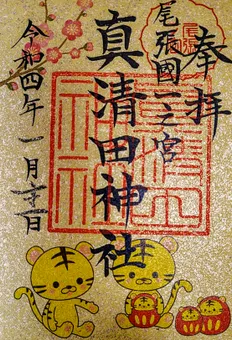 奉拝
尾張國一之宮
真清田神社
令和四年一月
日